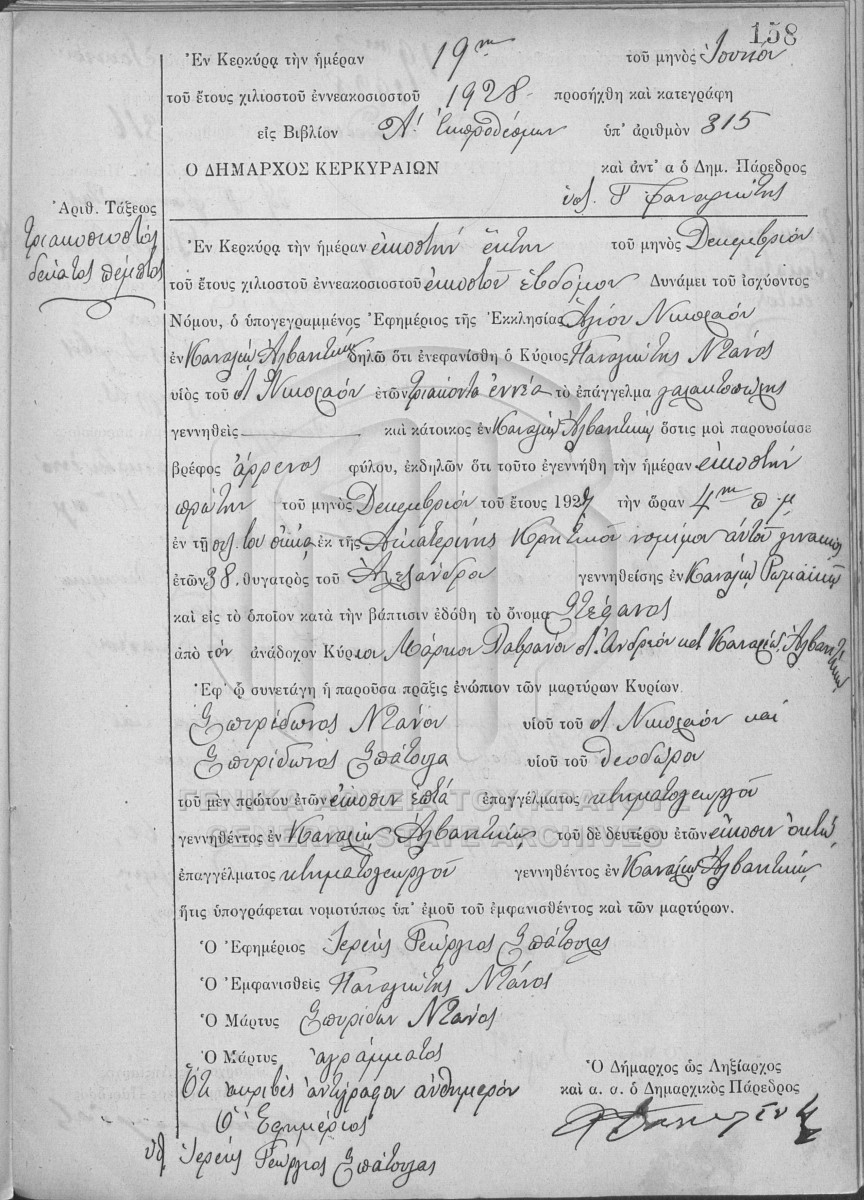 158
Ἐν Κερκύρᾳ τὴν ἡμέραν 19ην τοῦ μηνὸς Ἰουνίου
τοῦ ἔτους χιλιοστοῦ ἐννεακοσιοστοῦ 1928 προσήχθη καὶ κατεγράφη
εἰς Βιβλίον Α' ἐκπροθέσμων ὑπ' ἀριθμὸν 315
Ο ΔΗΜΑΡΧΟΣ ΚΕΡΚΥΡΑΙΩΝ καὶ ἀντ' α ὁ Δημ. Πάρεδρος
Ἀριθ. Τάξεως
τριακοσιοστὸς
δέκατος πέμπτος
Ἐν Κερκύρᾳ τὴν ἡμέραν εἰκοστὴν ἕκτην τοῦ μηνὸς Δεκεμβρίου
τοῦ ἔτους χιλιοστοῦ ἐννεακοσιοστοῦ εἰκοστοῦ ἑβδόμου Δυνάμει τοῦ ἰσχύοντος
Νόμου, ὁ ὑπογεγραμμένος Ἐφημέριος τῆς Ἐκκλησίας Ἁγίου Νικολάου
ἐν Καναλίῳ Ἀλβανικῷ δηλῶ ὅτι ἐνεφανίσθη ὁ Κύριος Παναγιώτης Ντάνος
υἱὸς τοῦ Νικολάου ἐτῶν τριάκοντα ἐννέα τὸ ἐπάγγελμα γαλακτοπώλης
γεννηθεὶς καὶ κάτοικος ἐν Καναλίῳ Ἀλβανικῷ ὅστις μοὶ παρουσίασε
βρέφος ἄρρενος φύλου, ἐκδηλῶν ὅτι τοῦτο ἐγεννήθη τὴν ἡμέραν εἰκοστὴν
πρώτην τοῦ μηνὸς Δεκεμβρίου τοῦ ἔτους 1927 τὴν ὥραν 4ην π.μ
ἐν τῇ οἰκίᾳ ἐκ τῆς Αἰκατερίνης Κρητικοῦ νομίμου αὐτοῦ γυναικὸς
ἐτῶν 38 θυγατρὸς τοῦ Ἀλεξάνδρου γεννηθείσης ἐν Καναλίῳ Ρωμαικῷ
καὶ εἰς τὸ ὁποῖον κατὰ τὴν βάπτισιν ἐδόθη τὸ ὄνομα Στέφανος
ἀπὸ τὸν ἀνάδοχον Κύριον Μάρκον Ἀνδρέου Καναλίῳ Ἀλβανικῷ
Ἐφ' ᾧ συνετάγη ἡ παροῦσα πρᾶξις ἐνώπιον τῶν μαρτύρων Κυρίων
Σπυρίδωνος Ντάνου υἱοῦ τοῦ Νικολάου καὶ
Σπυρίδωνος Σπάτουλα υἱοῦ τοῦ Θεοδώρου
τοῦ μὲν πρώτου ἐτῶν εἴκοσιν ἑπτὰ ἐπαγγέλματος κτηματογεωργοῦ
γεννηθέντος ἐν Καναλίῳ Ἀλβανικῷ τοῦ δὲ δευτέρου ἐτῶν εἴκοσιν ὀκτώ
ἐπαγγέλματος κτηματογεωργοῦ γεννηθέντος ἐν Καναλίῳ Ἀλβανικῷ
ἥτις ὑπογράφεται νομοτύπως ὑπ' ἐμοῦ τοῦ ἐμφανισθέντος καὶ τῶν μαρτύρων.
Ὁ Ἐφημέριος Ἱερεὺς Γεώργιος Σπάτουλας
Ὁ Ἐμφανισθεὶς Παναγιώτης Ντάνος
Ὁ Μάρτυς Σπυρίδων Ντάνος
Ὁ Μάρτυς ἀγράμματος
Ὅτι ἀκριβὲς ἀντίγραφον αὐθημερόν
Ὁ Ἐφημέριος
Ἱερεὺς Γεώργιος Σπάτουλας
Ὁ Δήμαρχος ὡς Ληξίαρχος
καὶ α. α. ὁ Δημαρχικὸς Πάρεδρος
ΓΕΝΙΚΑ ΑΡΧΕΙΑ ΤΟΥ ΚΡΑΤΟΥΣ
GENERAL STATE ARCHIVES